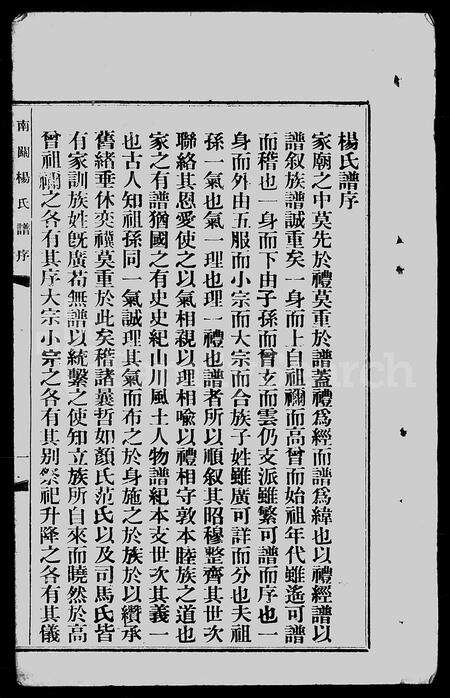 楊氏譜序
家廟之中莫先於禮莫重於譜蓋禮為經而譜為緯也以禮經譜以
譜叙族譜誠重矣一身而上自祖禰而高曾而始祖年代雖遙可譜
而稽也一身而下由子孫而曾玄而雲仍支派雖繁可譜而序也一
身而外由五服而小宗而大宗而合族子姓雖廣可詳而分也夫祖
孫一氣也氣一理也理一禮也譜者所以順叙其昭穆整齊其世次
聯絡其恩愛使之以氣相親以理相喻以禮相守敦本睦族之道也
家之有譜猶國之有史史紀山川風土人物譜紀本支世次其義一
也古人知祖孫同一氣誠理其氣而布之於身施之於族於以纘承
舊緒垂休奕禩莫重於此矣稽諸曩哲如顏氏范氏以及司馬氏皆
有家訓族姓旣廣苟無譜以統繫之使知立族所自來而曉然於高
曾祖禰之各有其序大宗小宗之各有其別祭祀升降之各有其儀
南關楊氏譜序
一